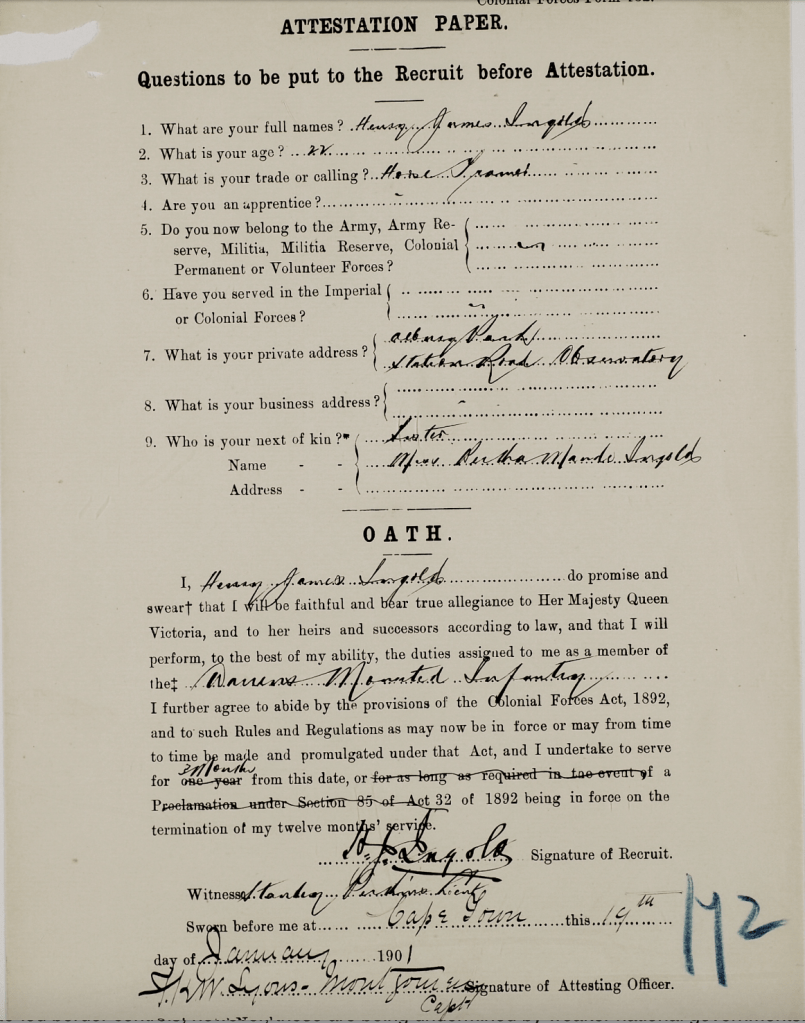 ATTESTATION PAPER.
Questions to be put to the Recruit before Attestation.
1. What are your full names? Henry James Ingold
2. What is your age? 22
3. What is your trade or calling? Horse
4. Are you an apprentice?
5. Do you now belong to the Army, Army Re-
serve, Militia, Militia Reserve, Colonial
Permanent or Volunteer Forces?
6. Have you served in the Imperial
or Colonial Forces?
7. What is your private address?
Station Road Observatory
8. What is your business address?
9. Who is your next of kin?* Sister
Name - - Miss Bertha Maude Ingold
Address - -
OATH.
I, Henry James Ingold do promise and
swear† that I will be faithful and bear true allegiance to Her Majesty Queen
Victoria, and to her heirs and successors according to law, and that I will
perform, to the best of my ability, the duties assigned to me as a member of
the‡ Warrens Mounted Infantry
I further agree to abide by the provisions of the Colonial Forces Act, 1892,
and to such Rules and Regulations as may now be in force or may from time
to time be made and promulgated under that Act, and I undertake to serve
3 Months
for one year from this date, or for as long as required in the event of a
Proclamation under Section 85 of Act 32 of 1892 being in force on the
termination of my twelve months' service.
H. J. Ingold Signature of Recruit.
Witness Stanley
Sworn before me at Cape Town this 19th
day of January 1901
Lyons-Montgomery Signature of Attesting Officer.
Capt
172